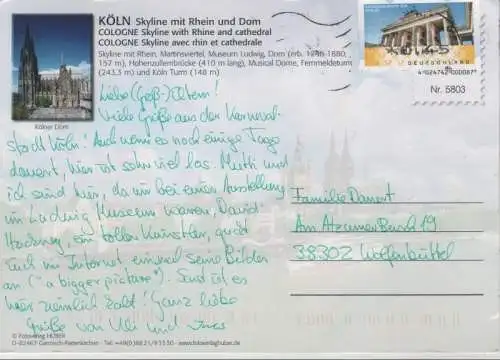 KÖLN Skyline mit Rhein und Dom
COLOGNE Skyline with Rhine and cathedral
COLOGNE Skyline avec rhin et cathedrale
Skyline mit Rhein, Martinsviertel, Museum Ludwig, Dom (erb. 1248-1880,
157 m), Hohenzollernbrücke (410 m lang), Musical Dome, Fernmeldeturm
(243,3 m) und Köln Turm (148 m)
Kölner Dom
DEUTSCHLAND
Nr. 5803
Liebe (Groß-)Eltern!
Viele Grüße aus der Karneval-
stadt Köln! Auch wenn es noch einige Tage
dauert, hier ist schon viel los. Mutti und
ich sind hier, da wir bei einer Ausstellung
im Ludwig Museum waren, David
Hockney, ein toller Künstler, guckt
Euch im Internet einmal seine Bilder
an ("a bigger picture"). Sonst ist es
hier ziemlich kalt! Ganz liebe
Grüße von Uli und
Familie
Am Atzumer Busch 19
38302 Wolfenbüttel
© Fotoverlag HUBER
D-82467 Garmisch-Partenkirchen Tel. +49(0)88 21/9 13 50 www.fotoverlaghuber.de